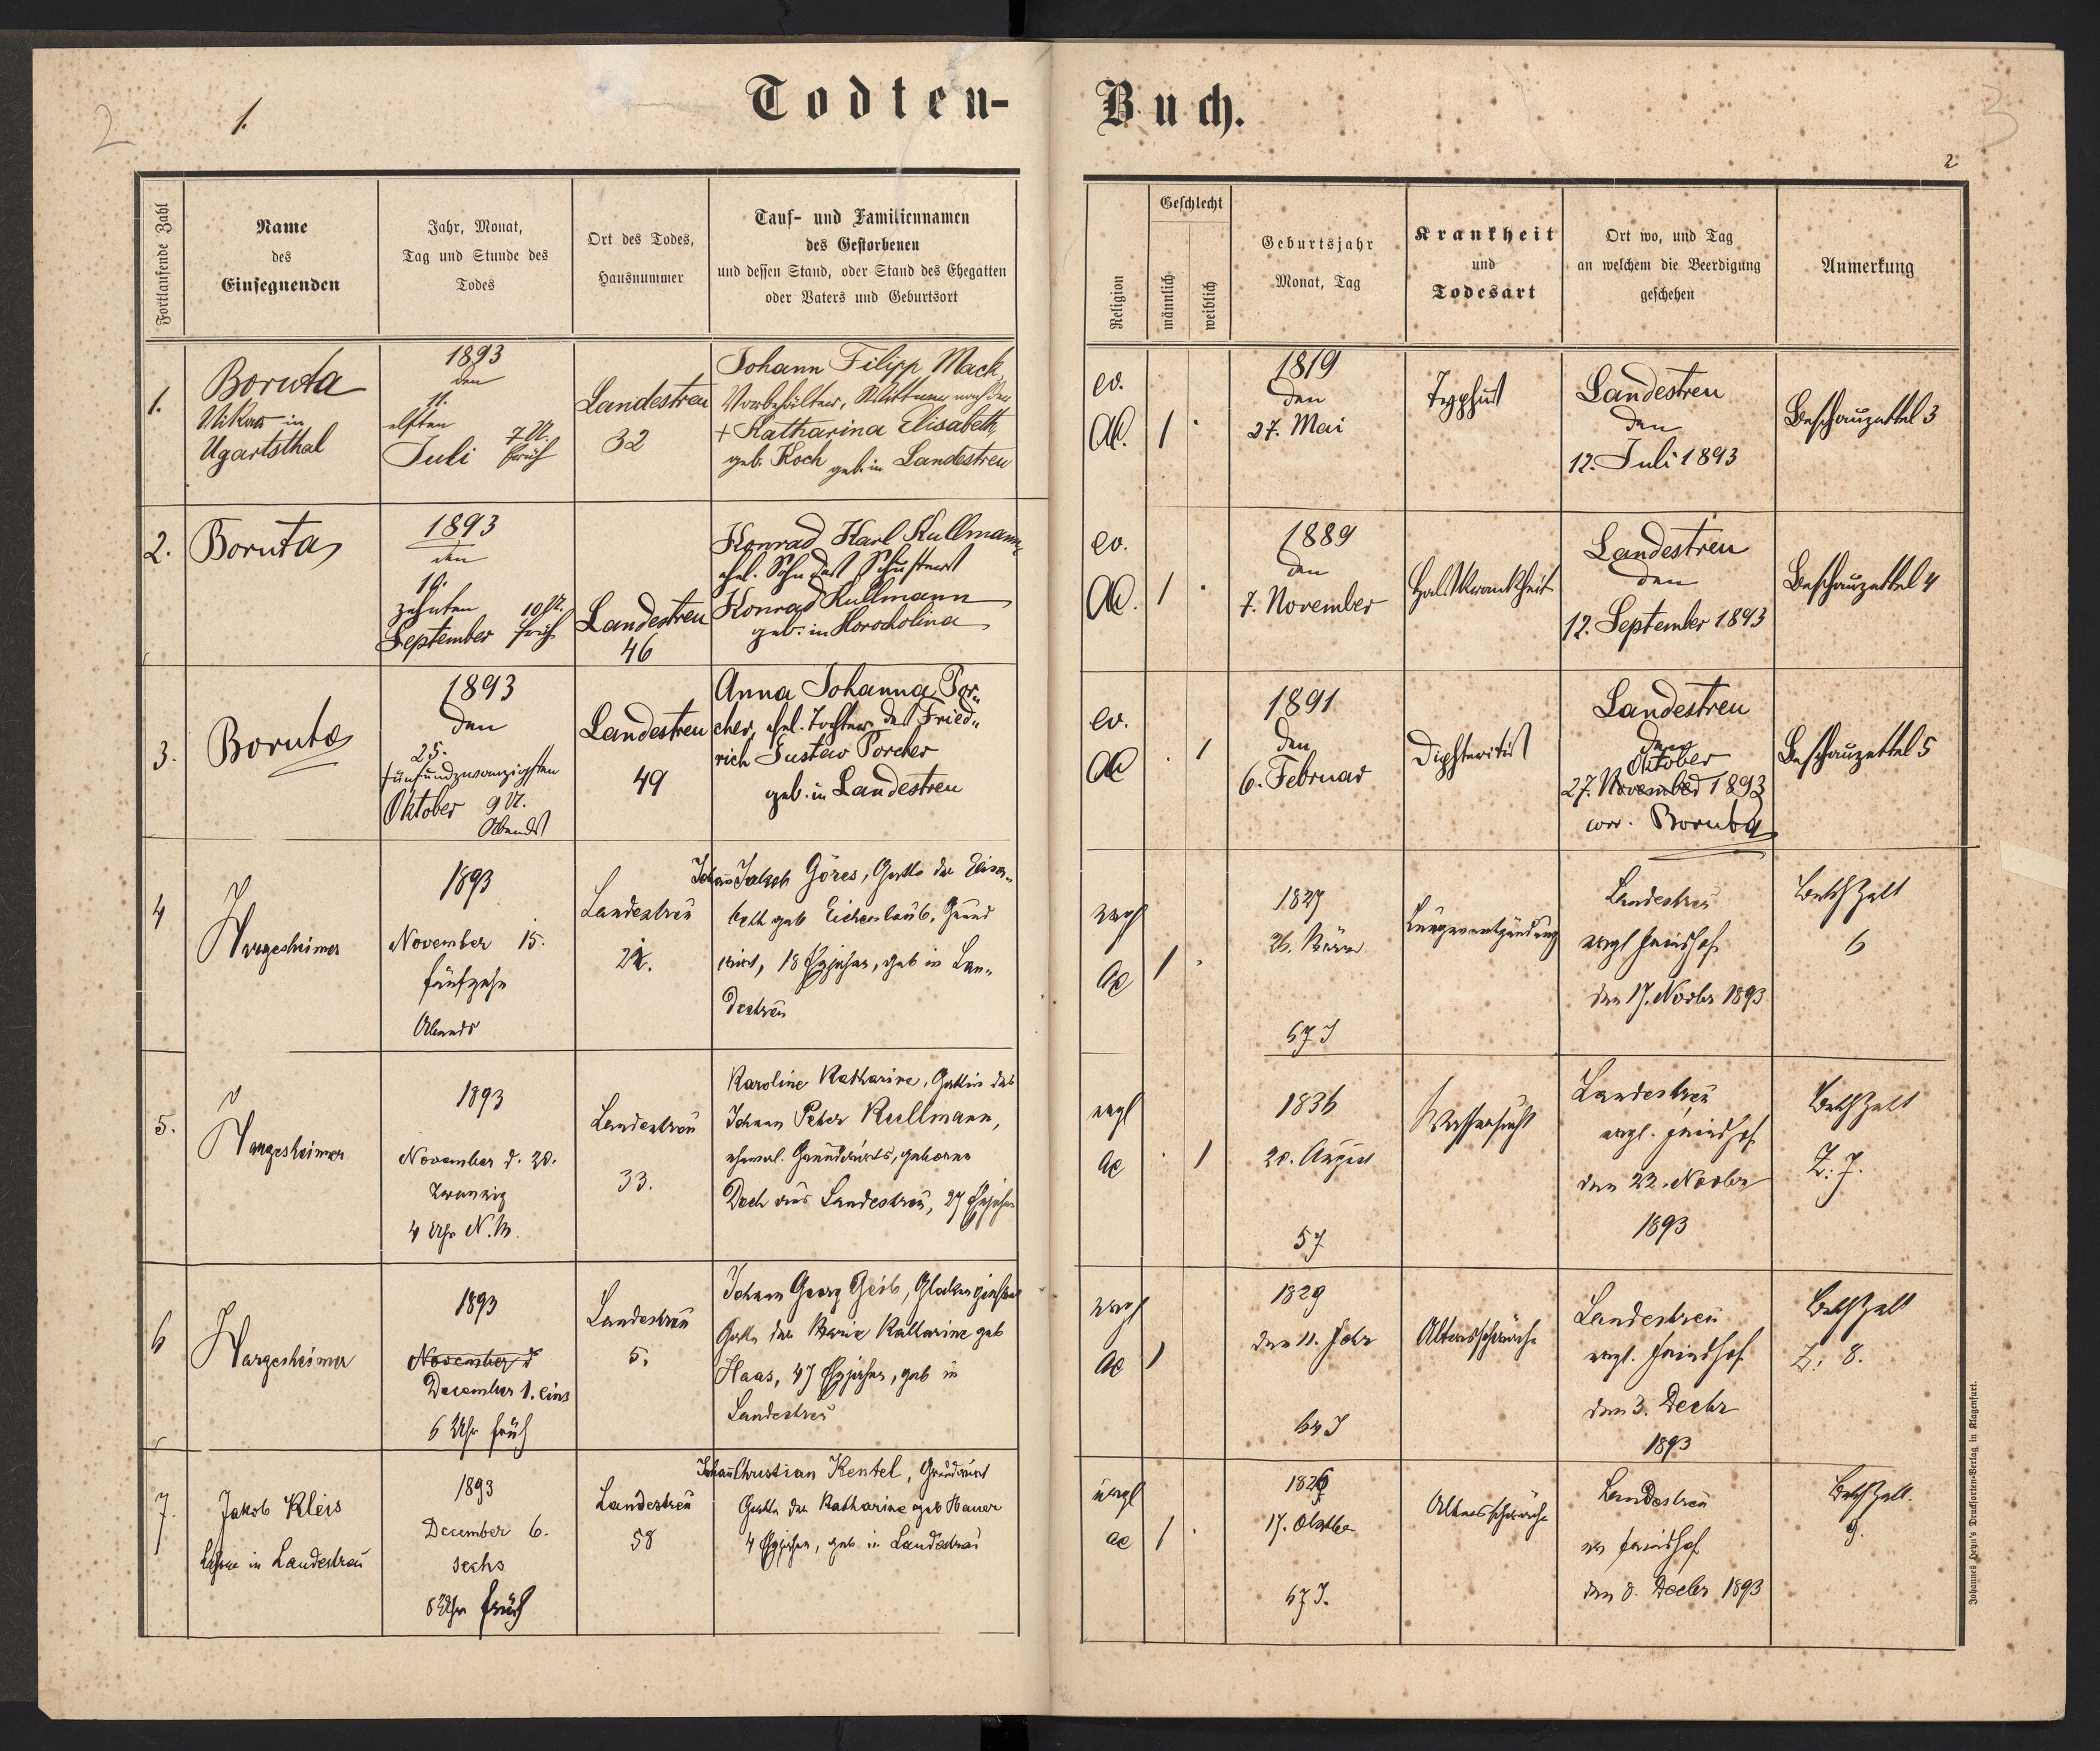 2
1.
Todten-
Buch.
3
2
Fortlaufende Zahl
Name
des
Einsegnenden
Jahr, Monat,
Tag und Stunde des
Todes
Ort des Todes,
Hausnummer
Tauf- und Familiennamen
des Gestorbenen
und dessen Stand, oder Stand des Ehegatten
oder Vaters und Geburtsort
Religion
Geschlecht
männlich
weiblich
Geburtsjahr
Monat, Tag
Krankheit
und
Todesart
Ort wo, und Tag
an welchem die Beerdigung
geschehen
Anmerkung
1.
Boruta
Vikar in
Ugartsthal
1893
den
11.
elften
Juli 7 U. früh
Landestreu
32
Johann Filipp Mack,
Vorbehälter, Wittwer nach der
+ Katharina Elisabeth,
geb. Koch geb. in Landestreu
ev.
AC. 1 .
1819
den
27. Mai
Typhus
Landestreu
den
12. Juli 1893
Beschauzettel 3
2.
Boruta
1893
den
10.
zehnten 10 U.
September früh
Landestreu
46
Konrad Karl Kullmann,
ehel. Sohn des Schusters
Konrad Kullmann
geb. in Horocholina
ev.
AC. 1 .
1889
den
7. November
Halskrankheit
Landestreu
den
12. September 1893
Beschauzettel 4
3.
Boruta
1893
den
25.
fünfundzwanzigsten
Oktober 9 U.
Abends
Landestreu
49
Anna Johanna Por„
cher, ehel. Tochter des Fried„
rich Gustav Porcher
geb. in Landestreu
ev.
AC . 1
1891
den
6. Februar
Diphteritis
Landestreu
den
Oktober
27. November 1893
corr. Boruta
Beschauzettel 5
4
Hargesheimer
1893
November 15.
fünfzehn
Abends
Landestreu
Johann Göres, Gatte der Elisa„
beth geb Eichenlaub, Grund
wirt, 18 Ehejahre, geb in Lan„
destreu
evgl
AC 1 .
1827
26. März
67 J
Lungenentzündung
Landestreu
evgl Friedhof
den 17. Novbr 1893
Besch Zett
6
5.
Hargesheimer
1893
November d. 20.
zwanzig
4 Uhr N.M.
Landestreu
33.
Karoline Katharine, Gattin des
Johann Peter Kullmann,
ehemal. Grundwirts, geborne
Dech aus Landestreu, 27 Ehejahre
evgl
AC . 1
1836
20. August
57
Wassersucht
Landestreu
evgl. Friedhof
den 22. Novbr
1893
Besch Zett
Z: 7.
6
Hargesheimer
1893
November d
December 1. eins
6 Uhr früh
Landestreu
5.
Johann Georg Geib, Glockengießer
Gatte der Marie Katharine geb
Haas, 47 Ehejahre, geb in
Landestreu
evgl
AC 1
1829
den 11. Febr
64 J
Altersschwäche
Landestreu
evgl. Friedhof
den 3. Decbr
1893
Besch Zett
Z: 8.
7.
Jakob Kleis
Lehrer in Landestreu
1893
December 6.
sechs
8 Uhr früh
Landestreu
58
Johann Christian Kentel, Grundwirt
Gatte der Katharine geb Bauer
4 Ehejahre, geb in Landestreu
evgl
AC 1 .
1826
17. Oktober
67 J.
Altersschwäche
Landestreu
ev Friedhof
den 8. Decbr 1893
Besch Zett.
9.
Johannes Heyn's Drucksorten-Verlag in Klagenfurt.